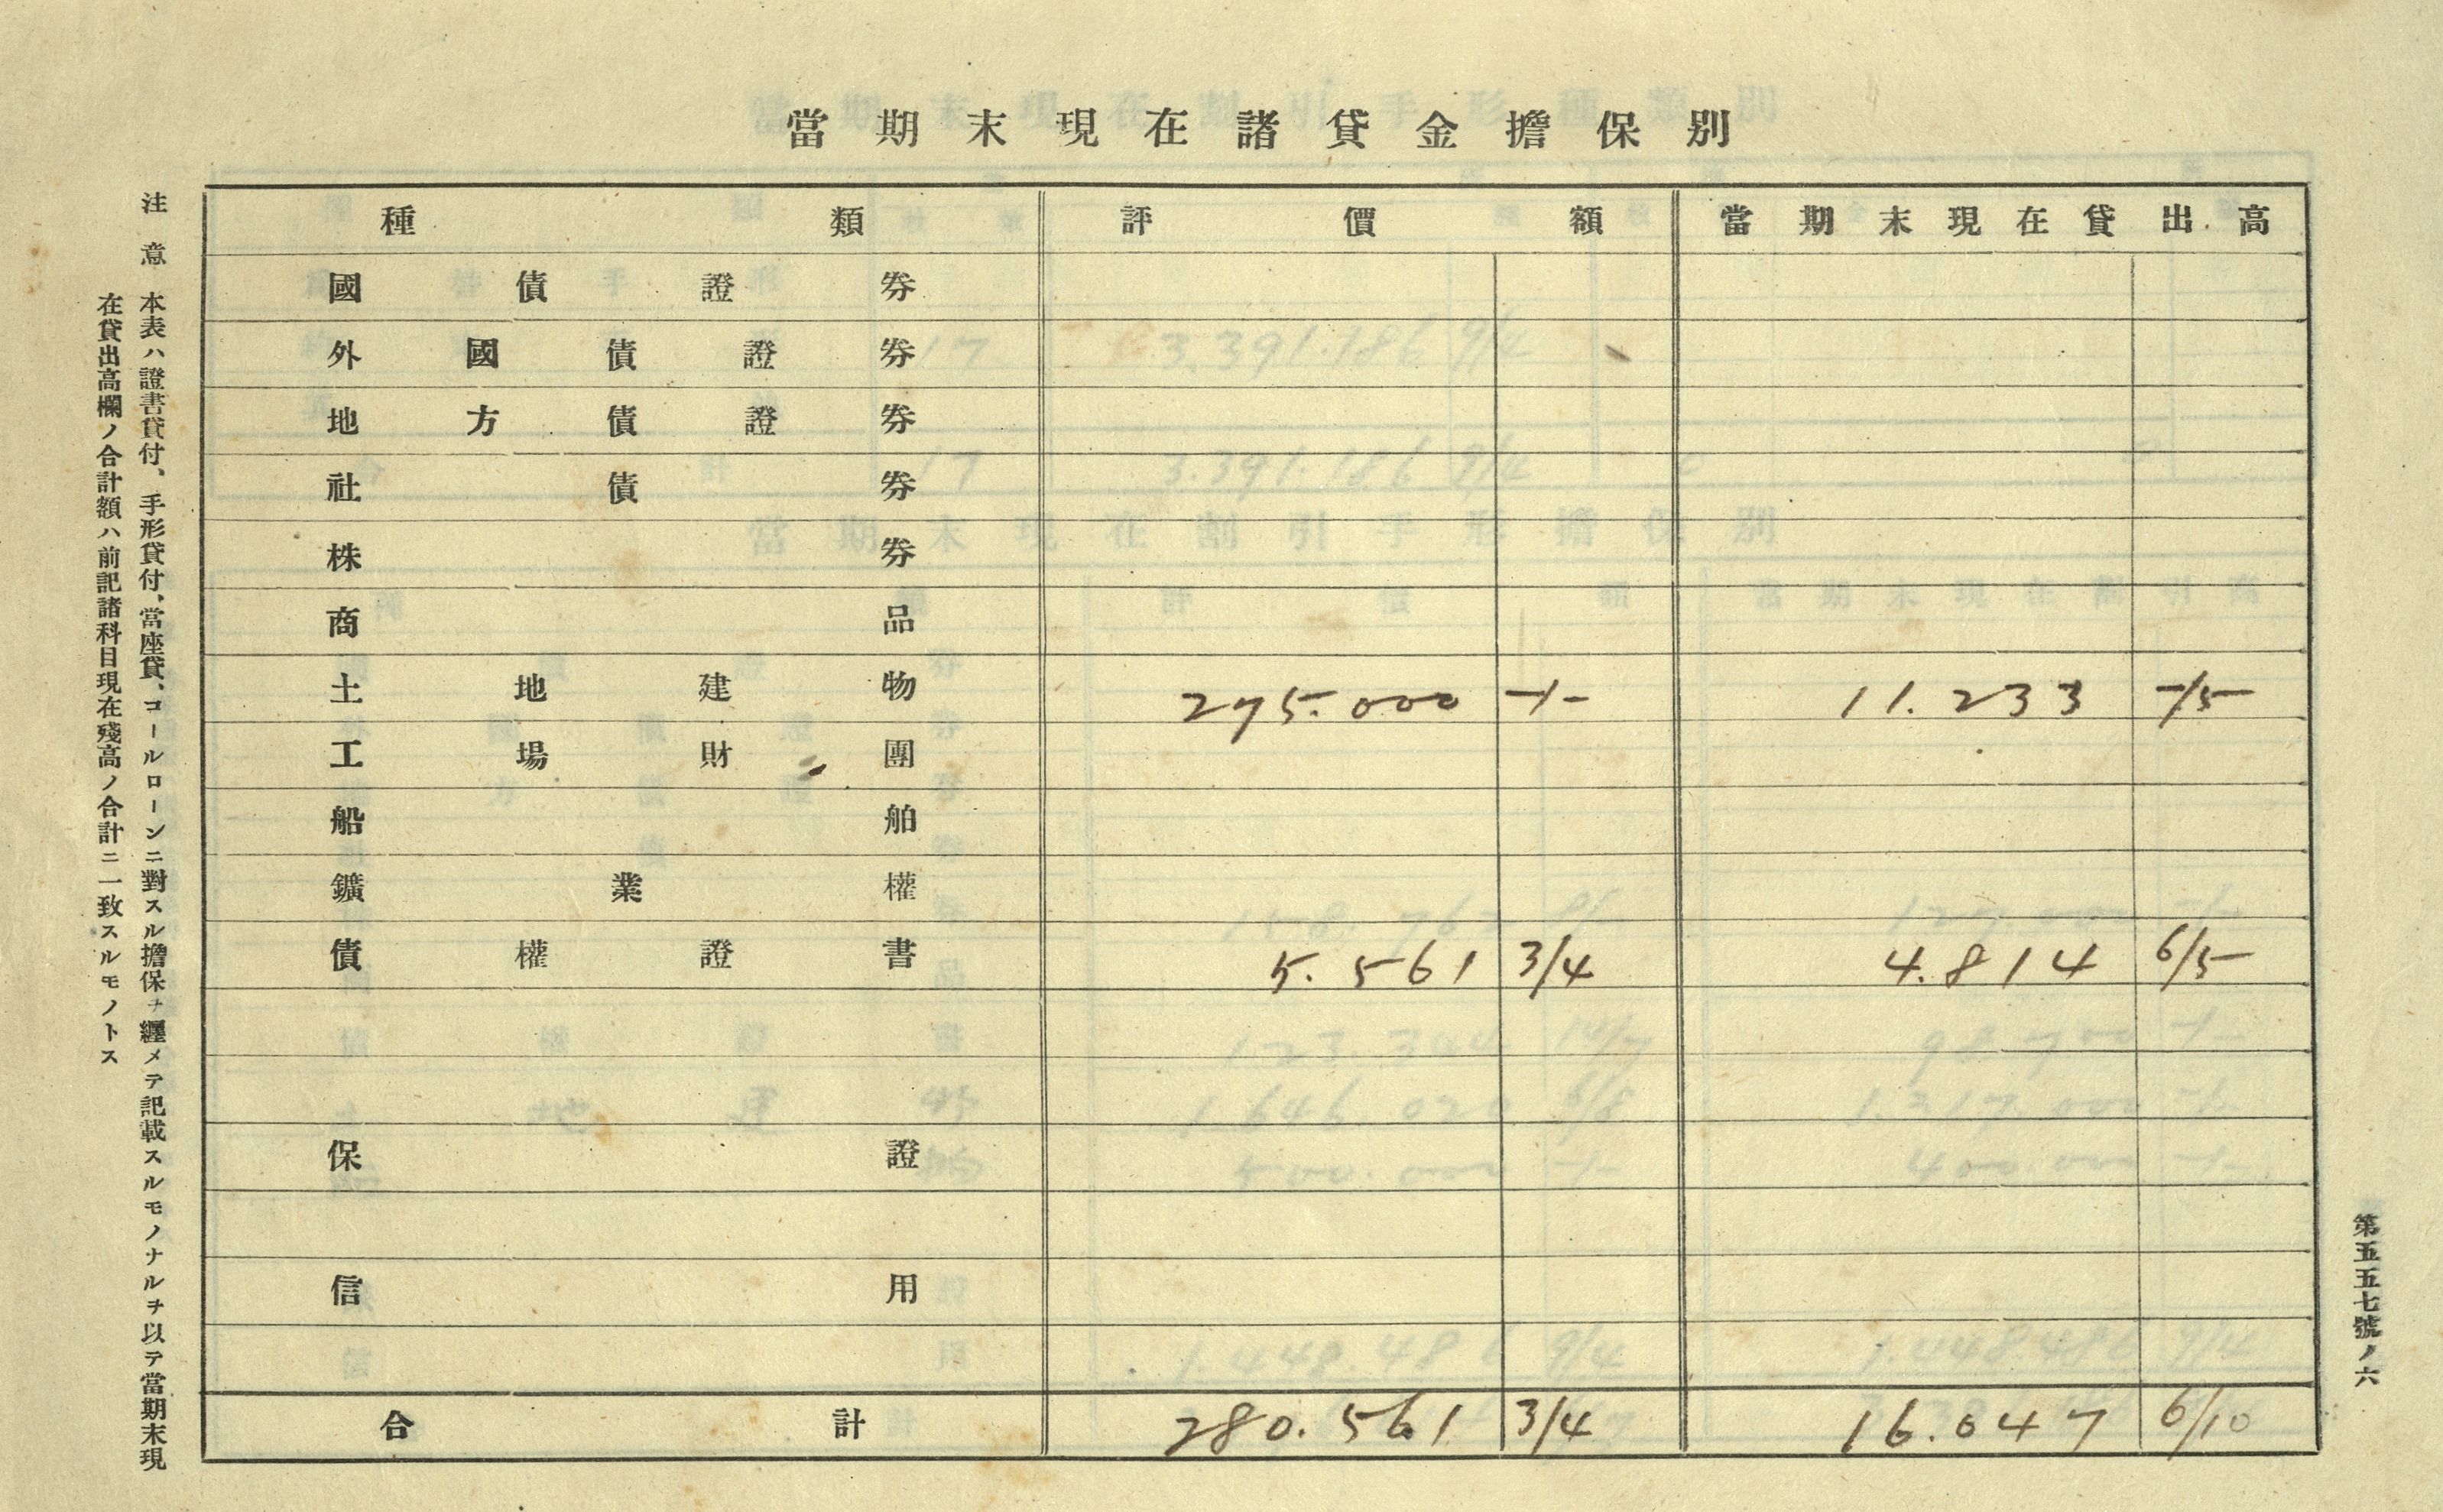 當期末現在諸貸金擔保別
種類 評價額 當期末現在貸出高
國債證券
外國債證券
地方債證券
社債券
株券
商品
土地建物 275.000 -/- 11.233 -/5
工場財團
船舶
鑛業權
債權證書 5.561 3/4 4.814 6/5
保證
信用
合計 280.561 3/4 16.047 6/10
注意 本表ハ證書貸付、手形貸付、當座貸、コールローンニ對スル擔保ヲ纒メテ記載スルモノナルヲ以テ當期末現
在貸出高欄ノ合計額ハ前記諸科目現在殘高ノ合計ニ一致スルモノトス
第五五七號ノ六